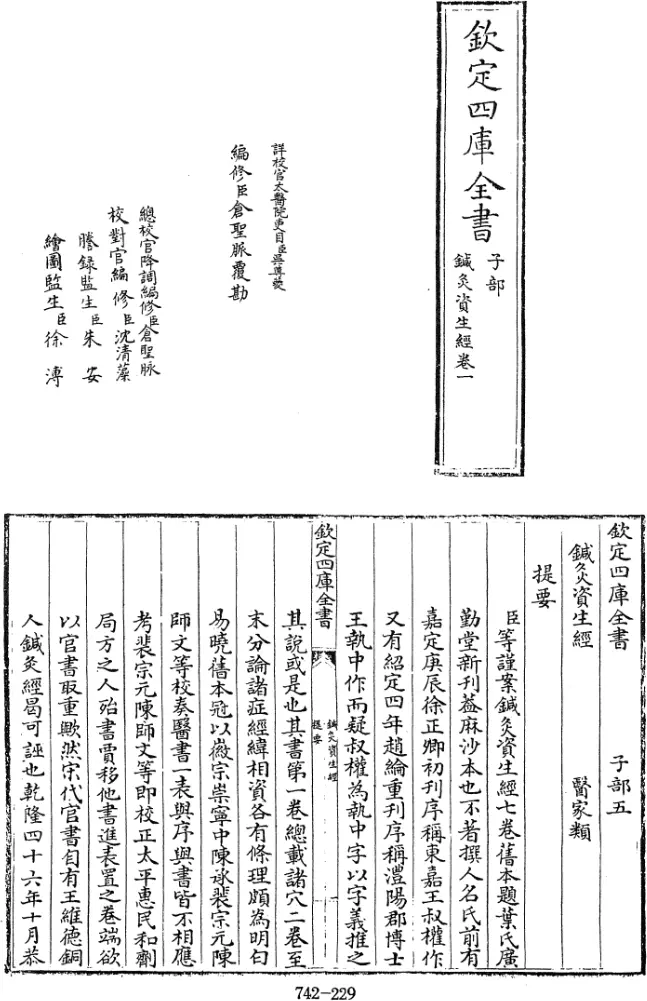 欽定四庫全書
子部
鍼灸資生經卷一
詳校官太醫院吏目臣吳尊夔
編修臣倉聖脈覆勘
總校官降調編修臣倉聖脈
校對官編修臣沈清藻
謄錄監生臣朱安
繪圖監生臣徐溥
欽定四庫全書 子部五
鍼灸資生經 醫家類
提要
臣等謹案鍼灸資生經七卷舊本題葉氏廣
勤堂新刊葢麻沙本也不著撰人名氏前有
嘉定庚辰徐正卿初刊序稱東嘉王叔權作
又有紹定四年趙綸重刊序稱澧陽郡博士
王執中作而疑叔權為執中字以字義推之
欽定四庫全書
鍼灸資生經
提要
其說或是也其書第一卷總載諸穴二卷至
末分論諸症經緯相資各有條理頗為明白
易曉舊本冠以徽宗崇寧中陳承裴宗元陳
師文等校奏醫書一表與序與書皆不相應
考裴宗元陳師文等即校正太平惠民和劑
局方之人殆書賈移他書進表置之卷端欲
以官書取重歟然宋代官書自有王維德銅
人鍼灸經曷可誣也乾隆四十六年十月恭
742-229